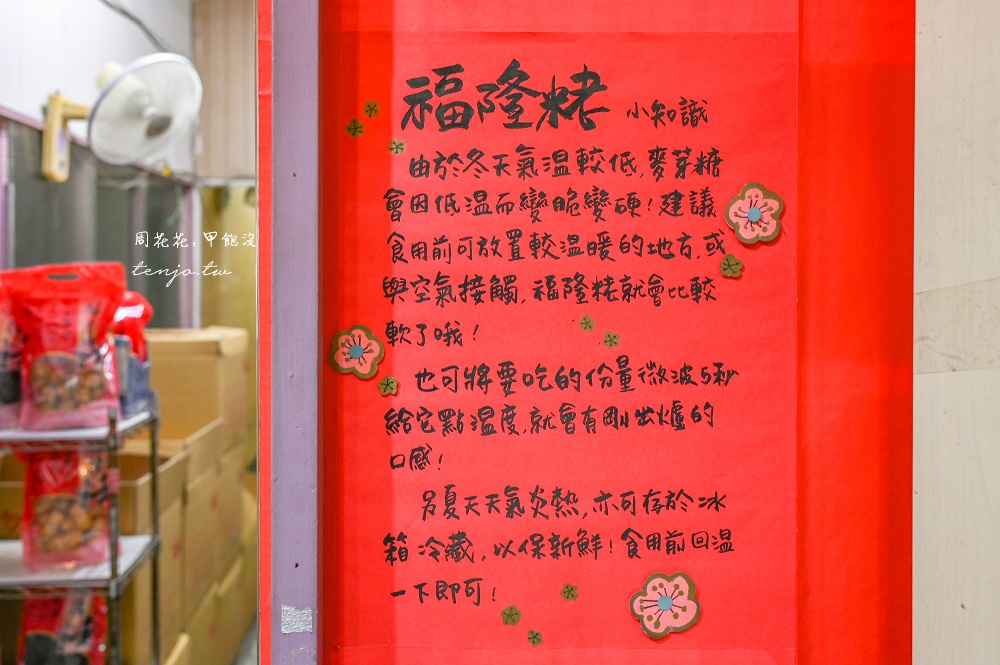 福隆粩 小知識
由於冬天氣溫較低,麥芽糖
會因低溫而變脆變硬!建議
食用前可放置較溫暖的地方,或
與空氣接觸,福隆粩就會比較
軟了哦!
也可將要吃的份量微波5秒
給它點溫度,就會有剛出爐的
口感!
另夏天天氣炎熱,亦可存於冰
箱冷藏,以保新鮮!食用前回溫
一下即可!
周花花,甲飽沒
tenjo.tw